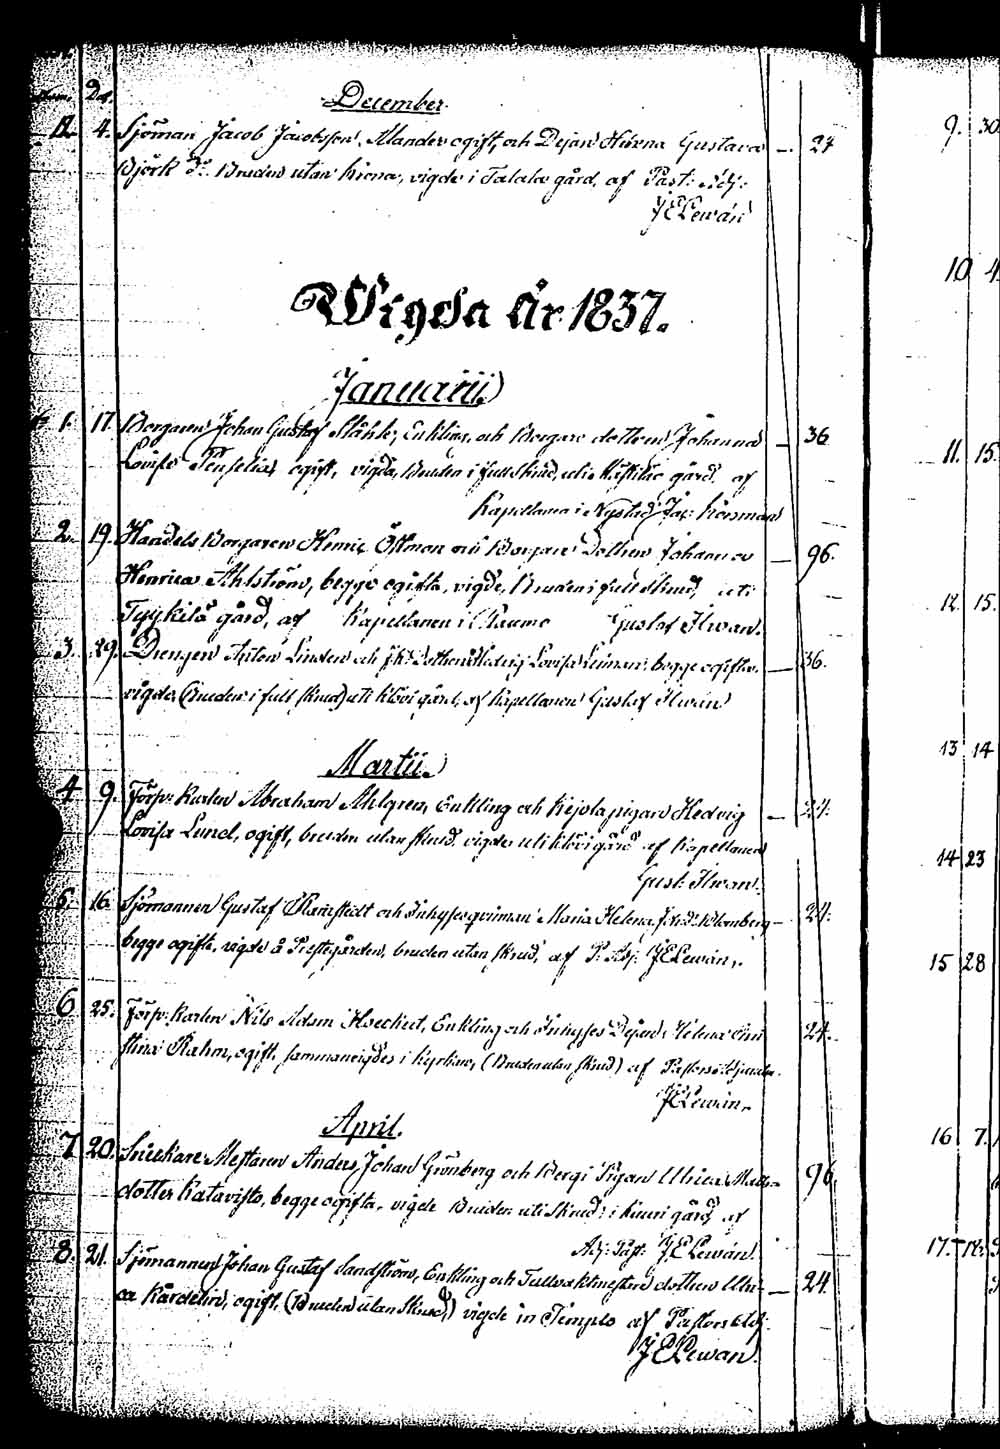 December
12. 4. Sjöman Jacob Jacobsson Mander ogift, och Dejan Helena Gustava — 24
Björk Do. Bruden utan krona, vigde i Talala gård, af Past: Adj:
J E Lewán
Wigda År 1837.
Januarii
1. 17. Borgaren Johan Gustaf Ståhle, Enkling, och Borgare dottren Johanna — 36
Lovisa ogift, vigde, Bruden i full skrud, uti gård, af
Kapellanen i Nystad
2. 19. Handels Borgaren Henric Öhman och Borgare Dottren Johanna — 96.
Henrica Ahlström, begge ogifta, vigde, Bruden i full skrud, uti
Tyykilä gård, af Kapellanen i Raumo Gustaf Ilwan.
3. 29. Drengen Anton Linden och Dottren Hedvig Lovisa begge ogifta. — 36.
vigde, (Bruden i full skrud) uti Klövi gård, af Kapellanen Gustaf Ilwan
Martii.
4 9. Förp: Karlen Abraham Ahlgren, Enkling och pigan Hedvig — 24.
Lovisa Lund, ogift, bruden utan skrud. vigde uti Klövi gård af Kapellanen
Gust: Ilwan.
5. 16. Sjömannen Gustaf Ramstedt och Inhyses qvinnan Maria Helena Blomberg — 24.
begge ogifta, vigde å Prestgården, bruden utan skrud, af P. Adj. J E Lewán,.
6 25. Förp: Karlen Nils Adam Hoeckert, Enkling och Inhyses Dejan Helena Chri 24.
stina Rahm, ogift, sammanvigdes i Kyrkan, (Bruden utan skrud) af Pastors Adjuncten
J E Lewán,.
April.
7 20. Snickare Mestaren Anders Johan Grönberg och Bergi Pigan Ulrica Matts- 96
dotter Katavisto, begge ogifta, vigde Bruden uti skrud i Kauri gård, af
Adj: Past: J E Lewán.
8. 21. Sjömannen Johan Gustaf Sandström, Enkling och Tullvaktmestare dottren Ulri- — 24.
ca Kårdelin, ogift, (Bruden utan skrud,) vigde in Templo af Pastors Adj:
J E Lewan.
9. 30
10 4
11. 15.
12. 15.
13 14
14 23
15 28
16 7.
17.